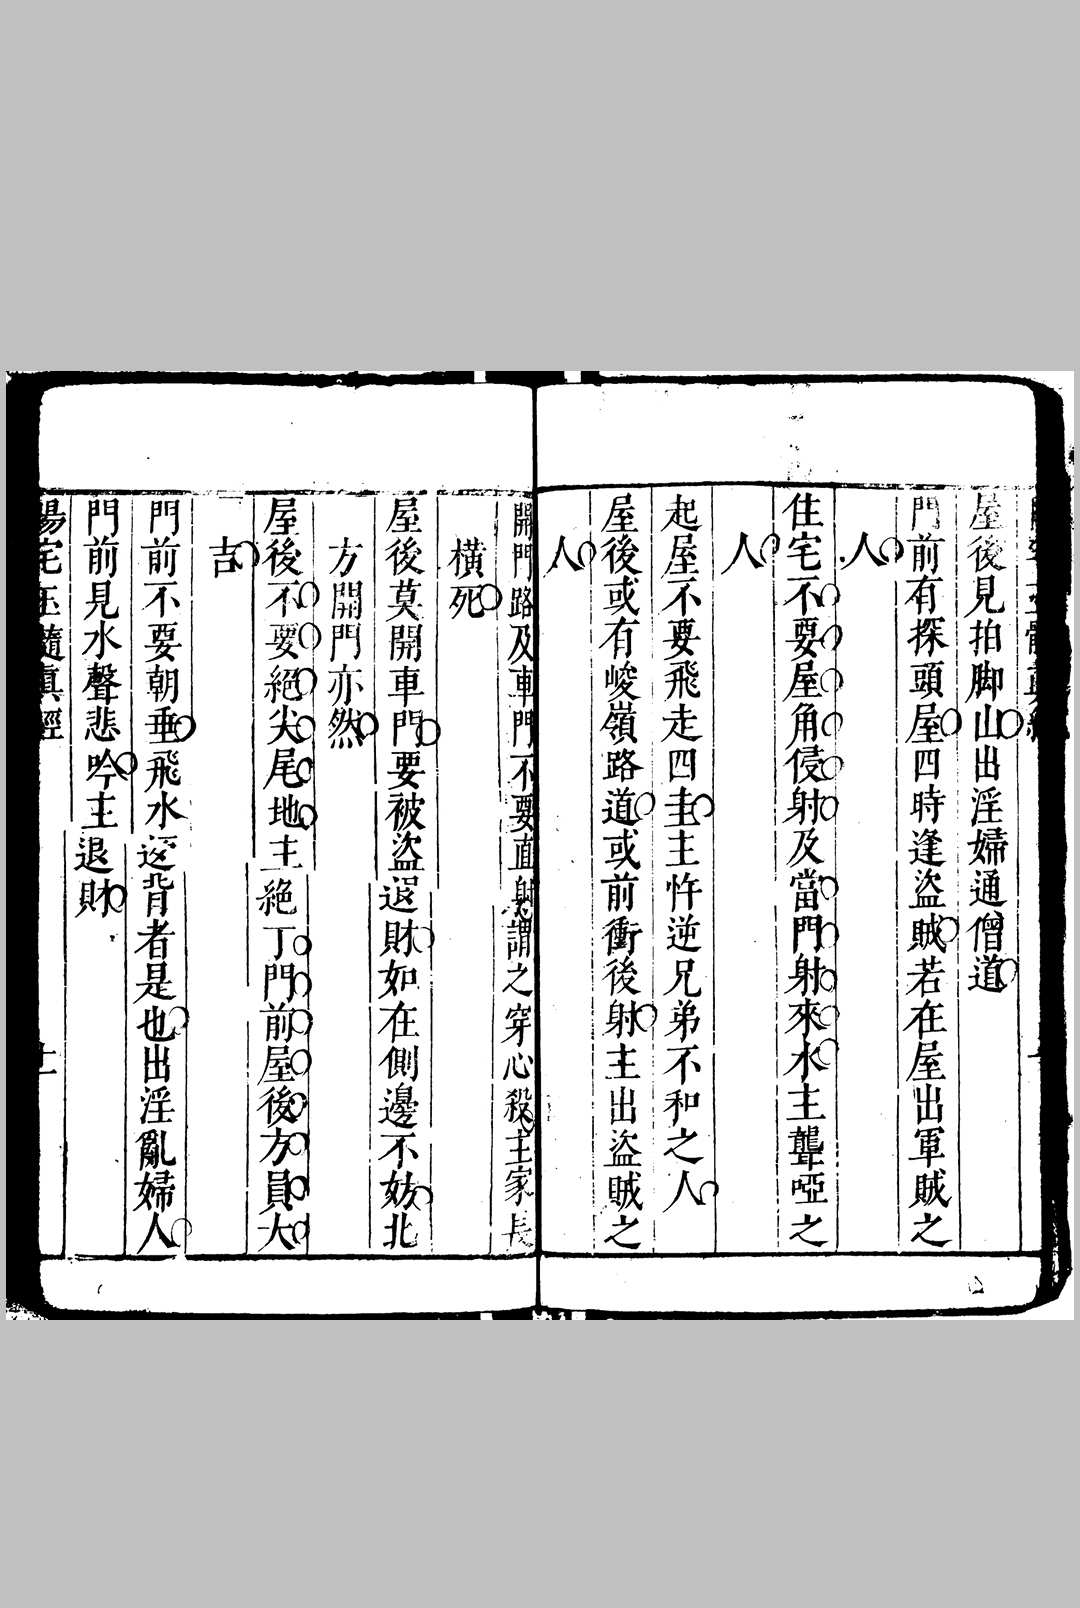 屋後見拍脚山出淫婦通僧道
門前有探頭屋四時逢盜賊若在屋出軍賊之
人
住宅不要屋角侵射及當門射來水主聾啞之
人
起屋不要飛走四圭主忤逆兄弟不和之人
屋後或有峻嶺路道或前衝後射主出盜賊之
人
開門路及車門不要直射謂之穿心殺主家長
橫死
屋後莫開車門要被盜退財如在側邊不妨北
方開門亦然
屋後不要絕尖尾地主絕丁門前屋後方員大
吉
門前不要朝垂飛水返背者是也出淫亂婦人
門前見水聲悲吟主退財
陽宅玉髓真經